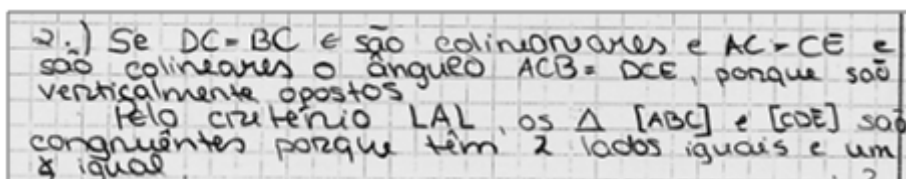 2.) Se DC = BC e são colineonares e AC = CE e
são colineares o ânguло ACB = DCE, porque são
verticalmente opostos
Pelo critério LAL, os Δ [ABC] e [CDE] são
congruêntes porque têm 2 lados iguais e um
∢ igual.